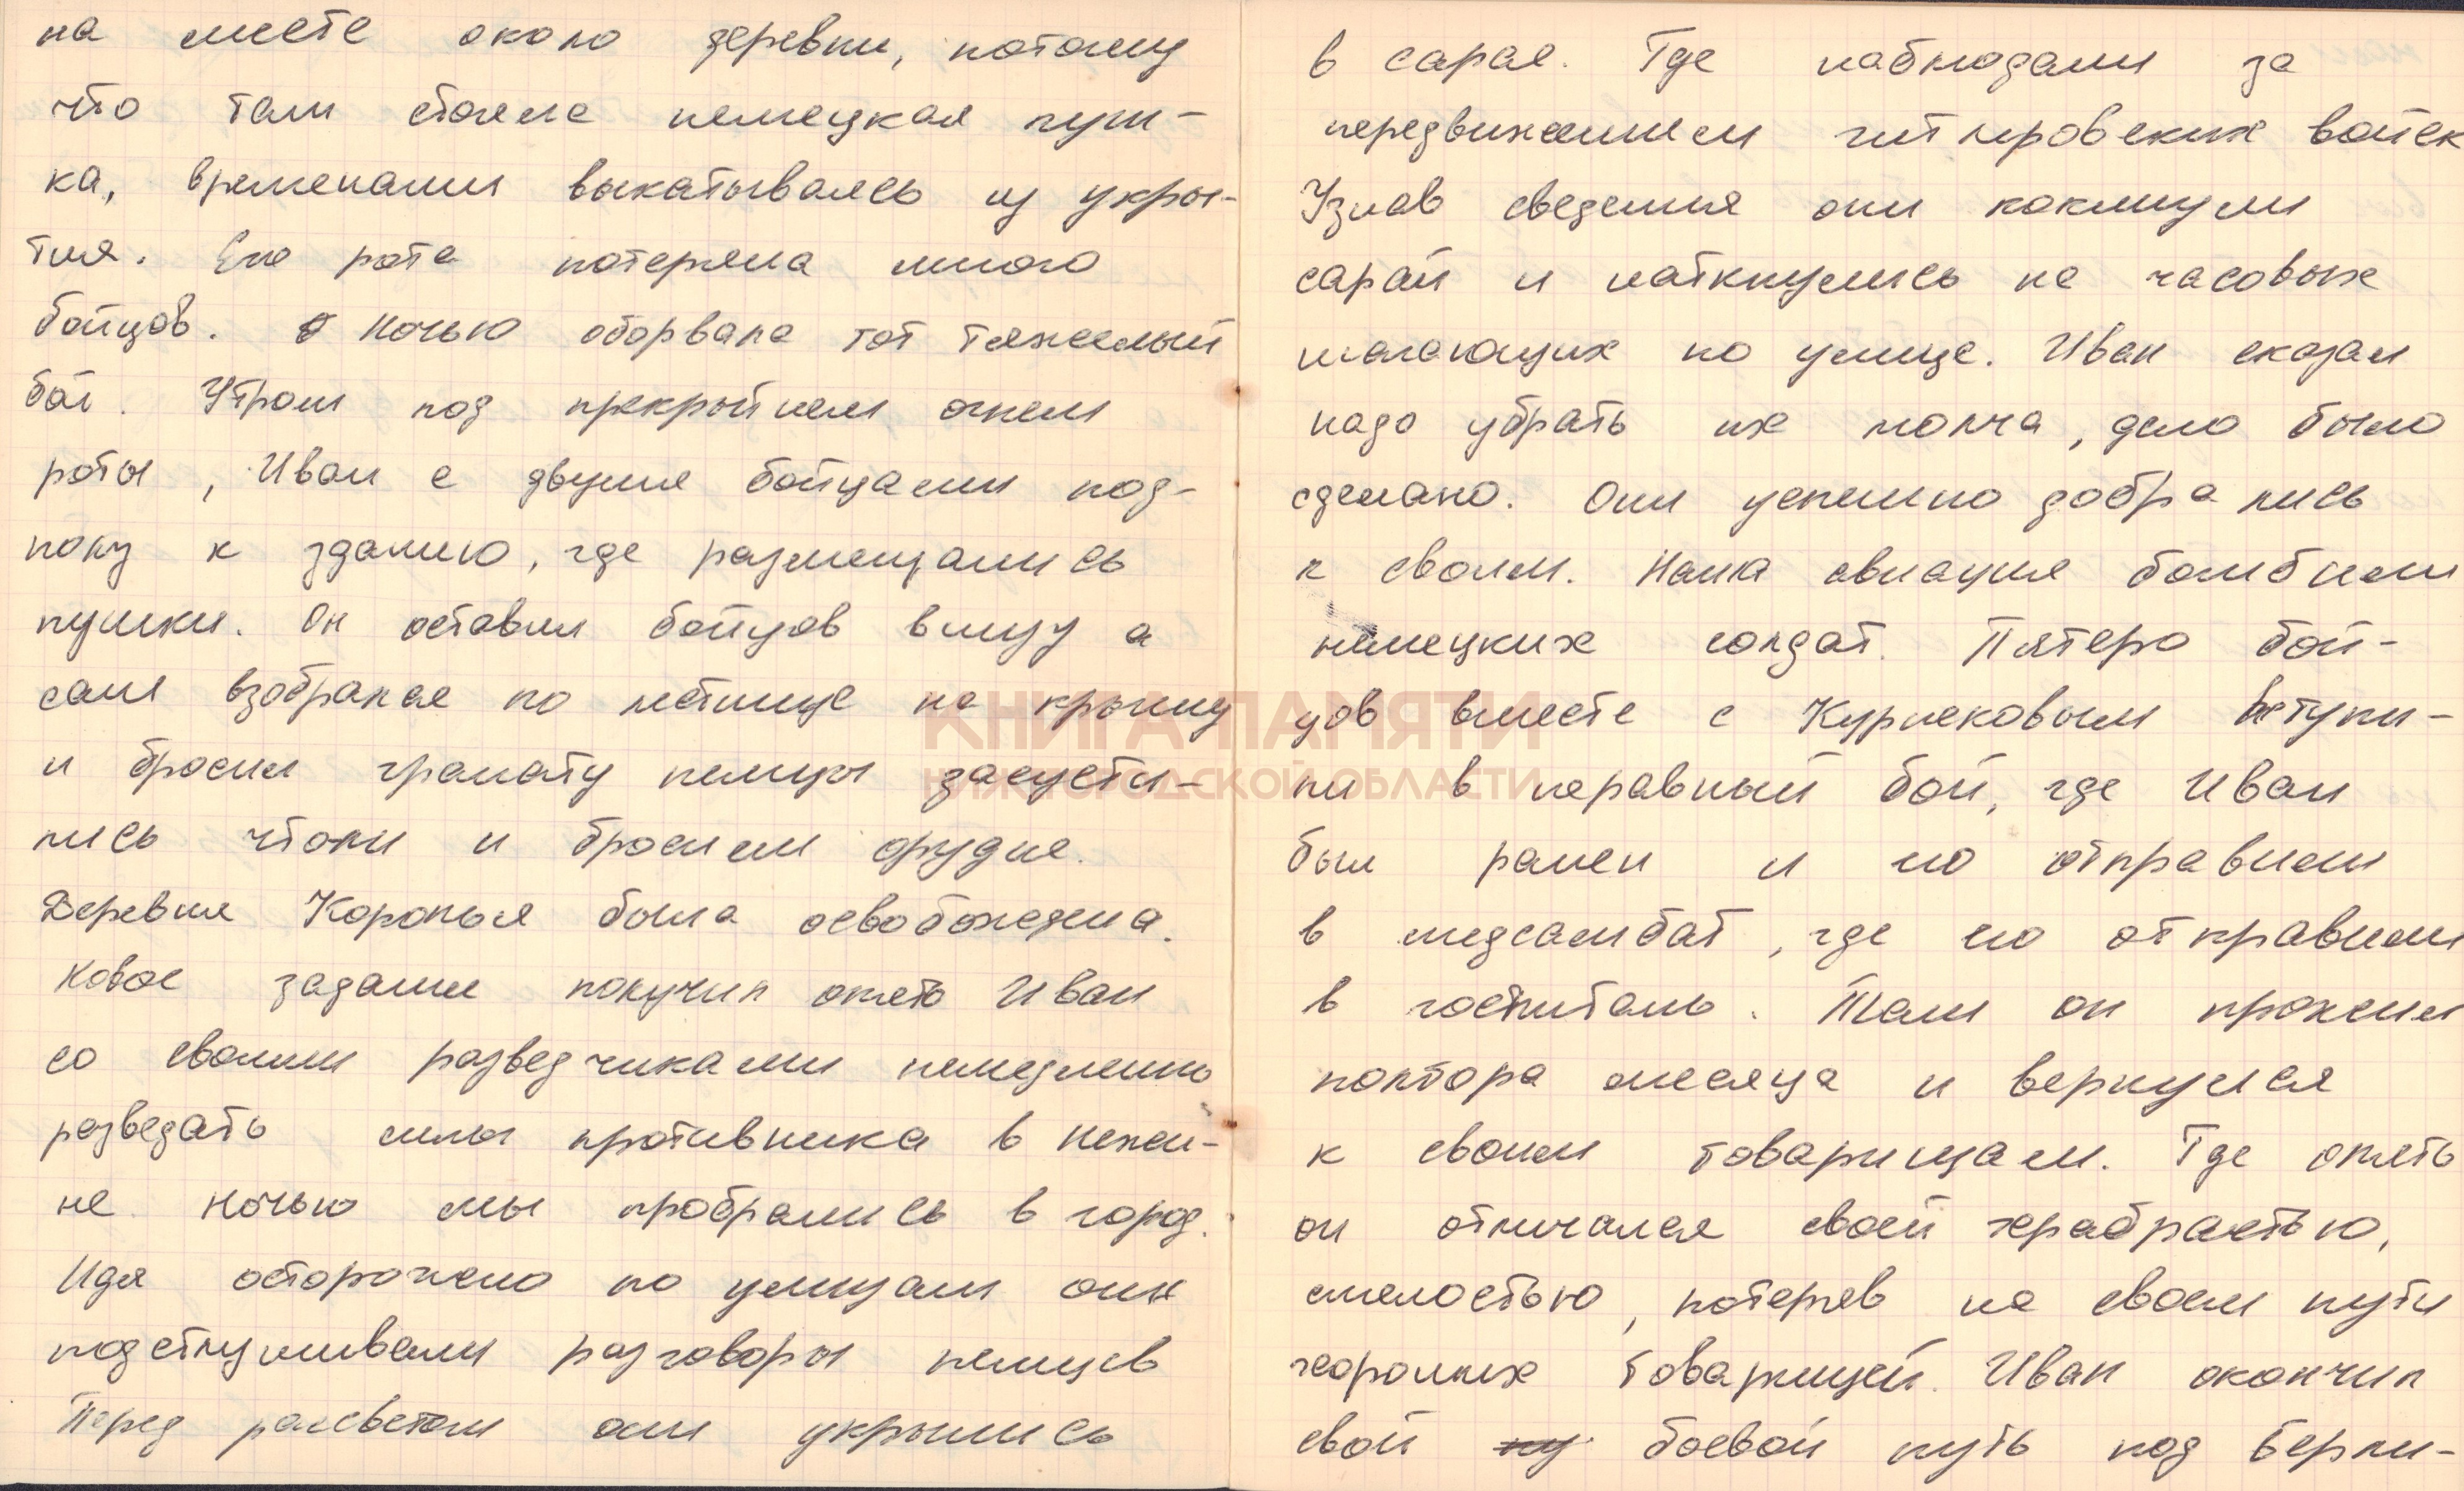 на месте около деревни, потому
что там стояла немецкая пуш-
ка, временами выкатываясь из укры-
тия. Его рота потеряла много
бойцов. Ночью оборвала тот тяжелый
бой. Утром под прекрытием огнем
роты, Иван с двумя бойцами под-
полз к зданию, где размещались
пушки. Он оставил бойцов внизу а
сам взобрался по летнице на крышу
и бросил гранату немцы засусти-
лись и бросили орудие.
Деревня Воронья была освобождена.
Новое задание получил опять Иван
со своими разведчиками немедленно
розведать силы противника в Нежи-
не. Ночью мы пробрались в город.
Идя осторожно по улицам они
подслушивали разговоры немцев
Перед рассветом они укрылись
в сарае. Где наблюдали за
передвижением гитлеровских войск
Узнав сведения они покинули
сарай и наткнулись на часовых
шагающих по улице. Иван сказал
надо убрать их молча, дело было
сделано. Они успешно добрались
к своим. Наша авиация бомбили
немецких солдат. Пятеро бой-
цов вместе с Курнековым вступи-
ли в неравный бой, где Иван
был ранен и его отправили
в медсамбат, где его отправили
в госпиталь. Там он прожил
полтора месяца и вернулся
к своим товарищам. Где опять
он отличался своей храбрастью,
смелостью, потеряв на своем пути
героиких товарищей. Иван окончил
свой боевой путь под Берли-
КНИГА ПАМЯТИ
НИЖЕГОРОДСКОЙ ОБЛАСТИ